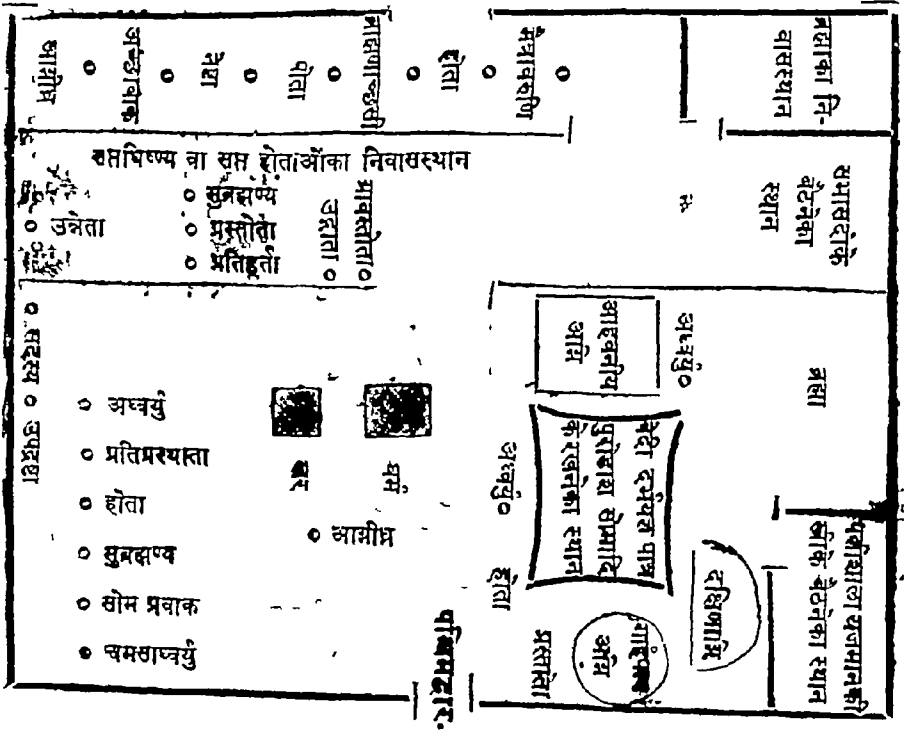 आग्नीध्र
अच्छावाक्
नेष्टा
पोता
ब्राह्मणाच्छंसी
होता
मैत्रावरुणि
ब्रह्माका नि-
वासस्थान
सप्तधिष्ण्य वा सप्त होताओंका निवासस्थान
सुब्रह्मण्य
उन्नेता
प्रस्तोता
प्रतिहर्ता
उद्गाता
ग्रावस्तोता
सभासदोंके
बैठनेका
स्थान
सदस्य
उपद्रष्टा
अध्वर्यु
प्रतिप्रस्थाता
होता
सुब्रह्मण्य
सोम प्रवाक
चमसाध्वर्यु
खर
घर्म
आग्नीध्र
आहवनीय
अग्नि
अध्वर्यु
ब्रह्मा
अध्वर्यु
वेदी
पात्र
पुरोडाश सोमादि
के रखनेका स्थान
होता
प्रस्तोता
गार्हपत्य
अग्नि
दक्षिणाग्नि
पत्नीशाला यजमानकी
स्त्रीके बैठनेका स्थान
पश्चिमद्वार.